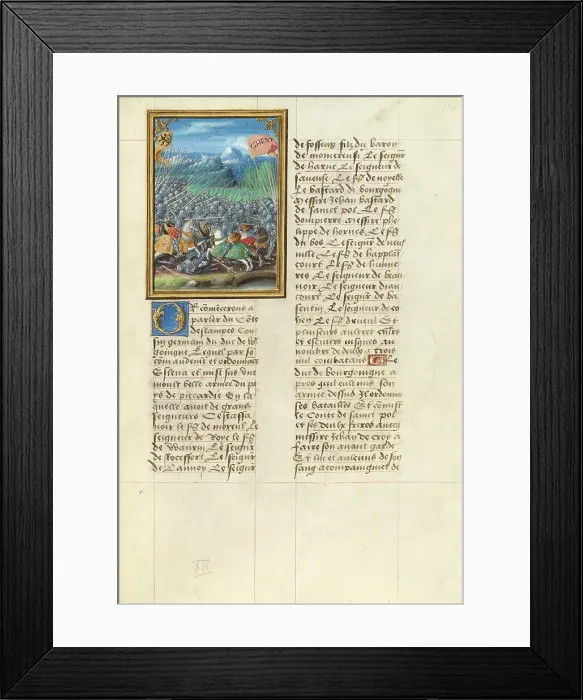 GHENT
Or comencerons a
parler du Côte
destampes Cou
sin germain du duc de bo
gouigne Lequel par so
comandemt et ordonnance
Esleva et mist sus une
moult belle armee du pa
ys de piccardie En la
quelle avoit de grans
seigneurs Cestassa
voir le ss de moreul Le
seigneur de Roye le ss
de Waurin Le seignr
de Rocefort Le seignr
de Lannoy Le seignr
de fosseux filz du baron
de Le seignr
de harne Le seigneur de
saveuse Le ss de noyelle
Le bastard de bourgõgne
messire Jehan bastard
de sainct pol Le ss
dompierre messire phe
lippe de hornes Le ss
du bos Le seignr de neuf
ville Le ss de happlai
court Le ss de humie
res Le seigneur de beau
noir Le seigneur diau
court Le seignr de ba
sentin Le seigneur de co
hen Le ss dreuul Et
plusieurs autres chlrs
et escuiers jusques au
nombre de deux a trois
mil combatans Le
duc de bourgouigne a
pres quil eut mis son
armee dessus Il ordonna
ses batailles Et comist
le Conte de sainct pol
et ses deulx freres avecq
messire Jehan de croy a
faire son avant garde
Et lui et aulcuns de son
sang acompaigniet de
XII